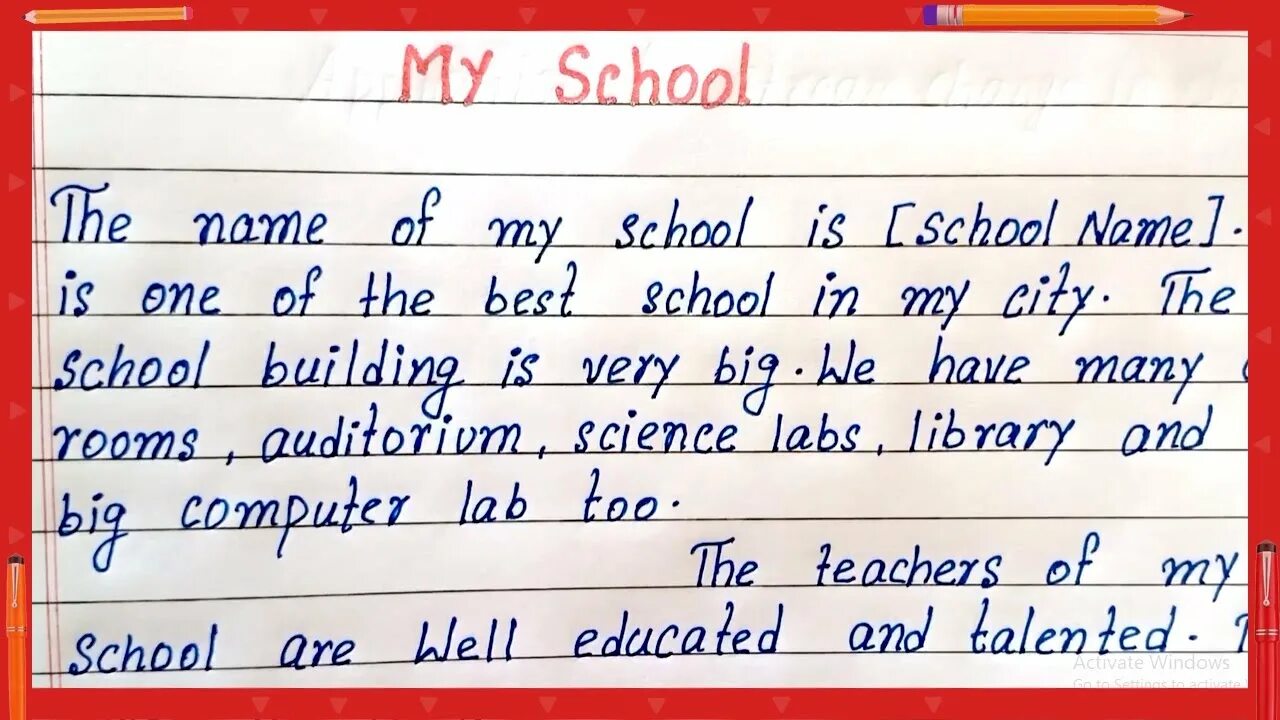 My School
The name of my school is [School Name].
is one of the best school in my city. The
school building is very big. We have many
rooms, auditorium, science labs, library and
big computer lab too.
The teachers of my
School are Well educated and talented.
Activate Windows
Go to Settings to activate